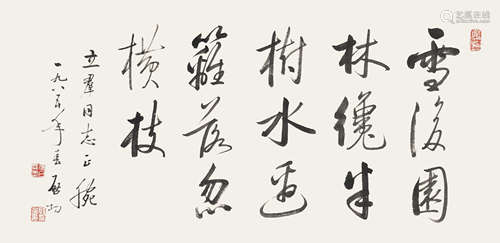 雪後園
林纔半
樹水邊
籬落忽
橫枝
立群同志正腕
一九八六年春 啟功